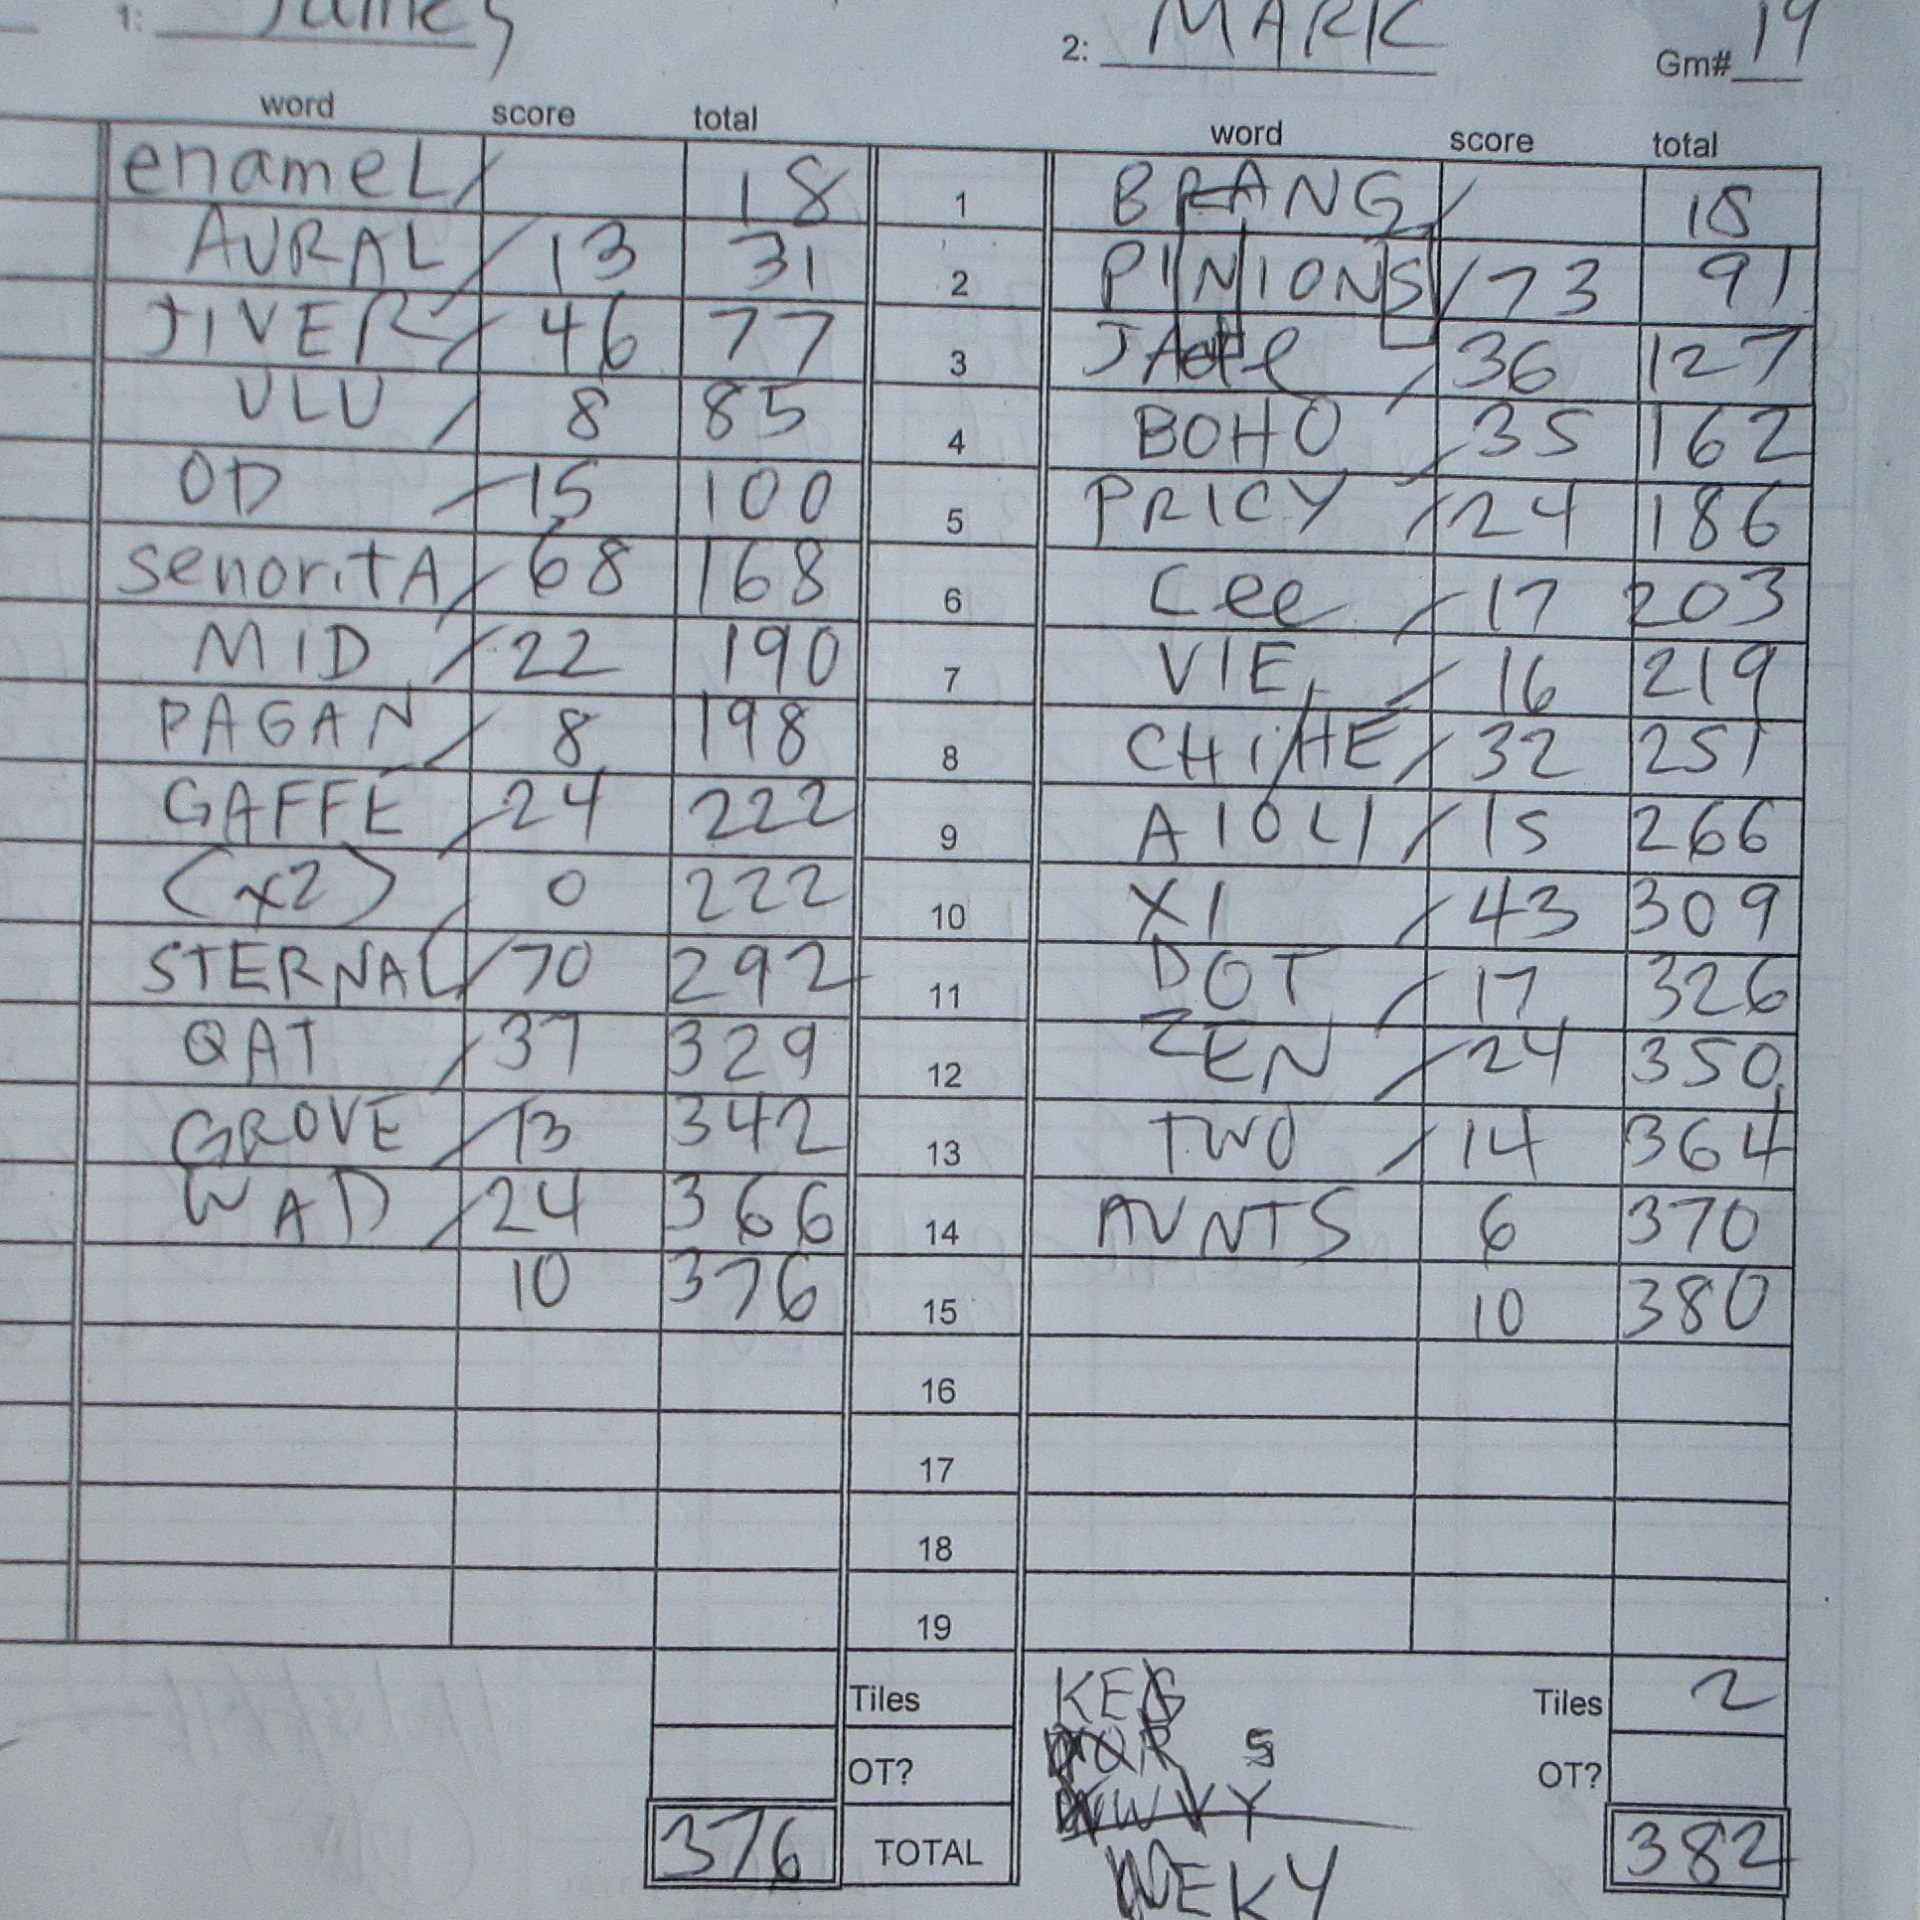 1: James 2: MARK Gm# 14
word score total word score total
enameL 18 1 BRANG 18
AURAL 13 31 2 PINIONS 73 91
JIVER 46 77 3 36 127
ULU 8 85 4 BOHO 35 162
OD 15 100 5 PRICY 24 186
senoritA 68 168 6 Cee 17 203
MID 22 190 7 VIE 16 219
PAGAN 8 198 8 32 251
GAFFE 24 222 9 AIOLI 15 266
(x2) 0 222 10 XI 43 309
STERNAL 70 292 11 DOT 17 326
QAT 37 329 12 ZEN 24 350
GROVE 13 342 13 TWO 14 364
WAD 24 366 14 AUNTS 6 370
10 376 15 10 380
16
17
18
19
Tiles KEG Tiles 2
OT? S OT?
376 TOTAL WEKY 382